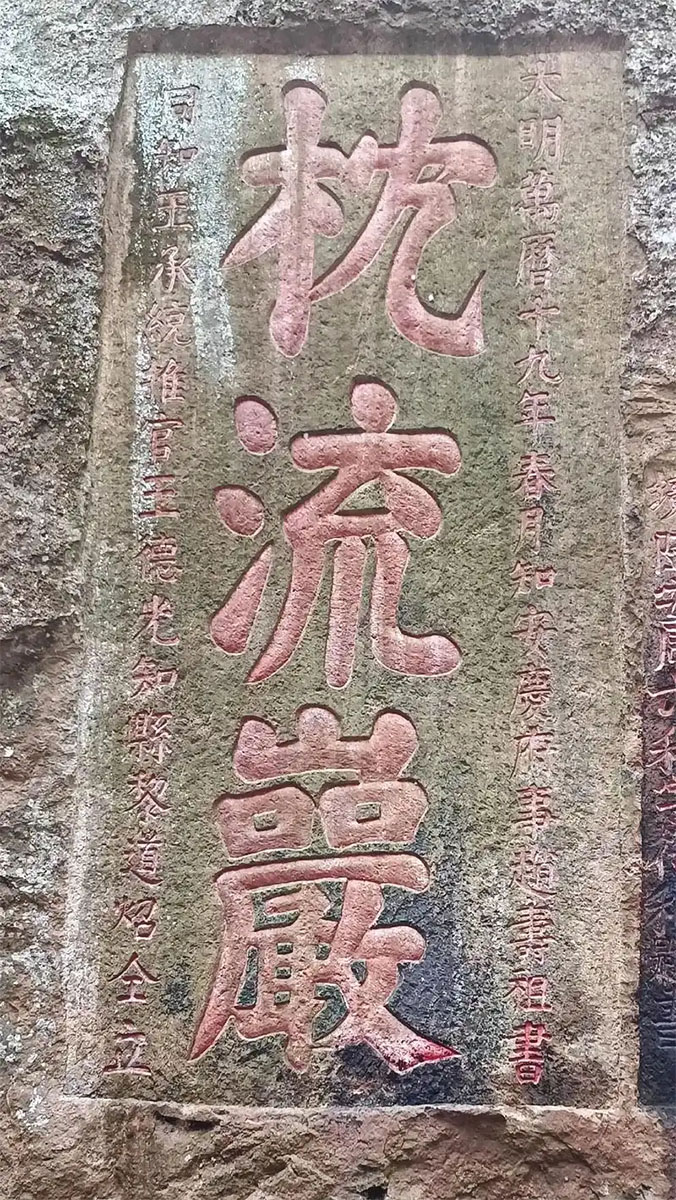 大明萬曆十九年春月知安慶府事趙壽祖書
枕流巖
同知王承統推官王德光知縣黎道炤仝立